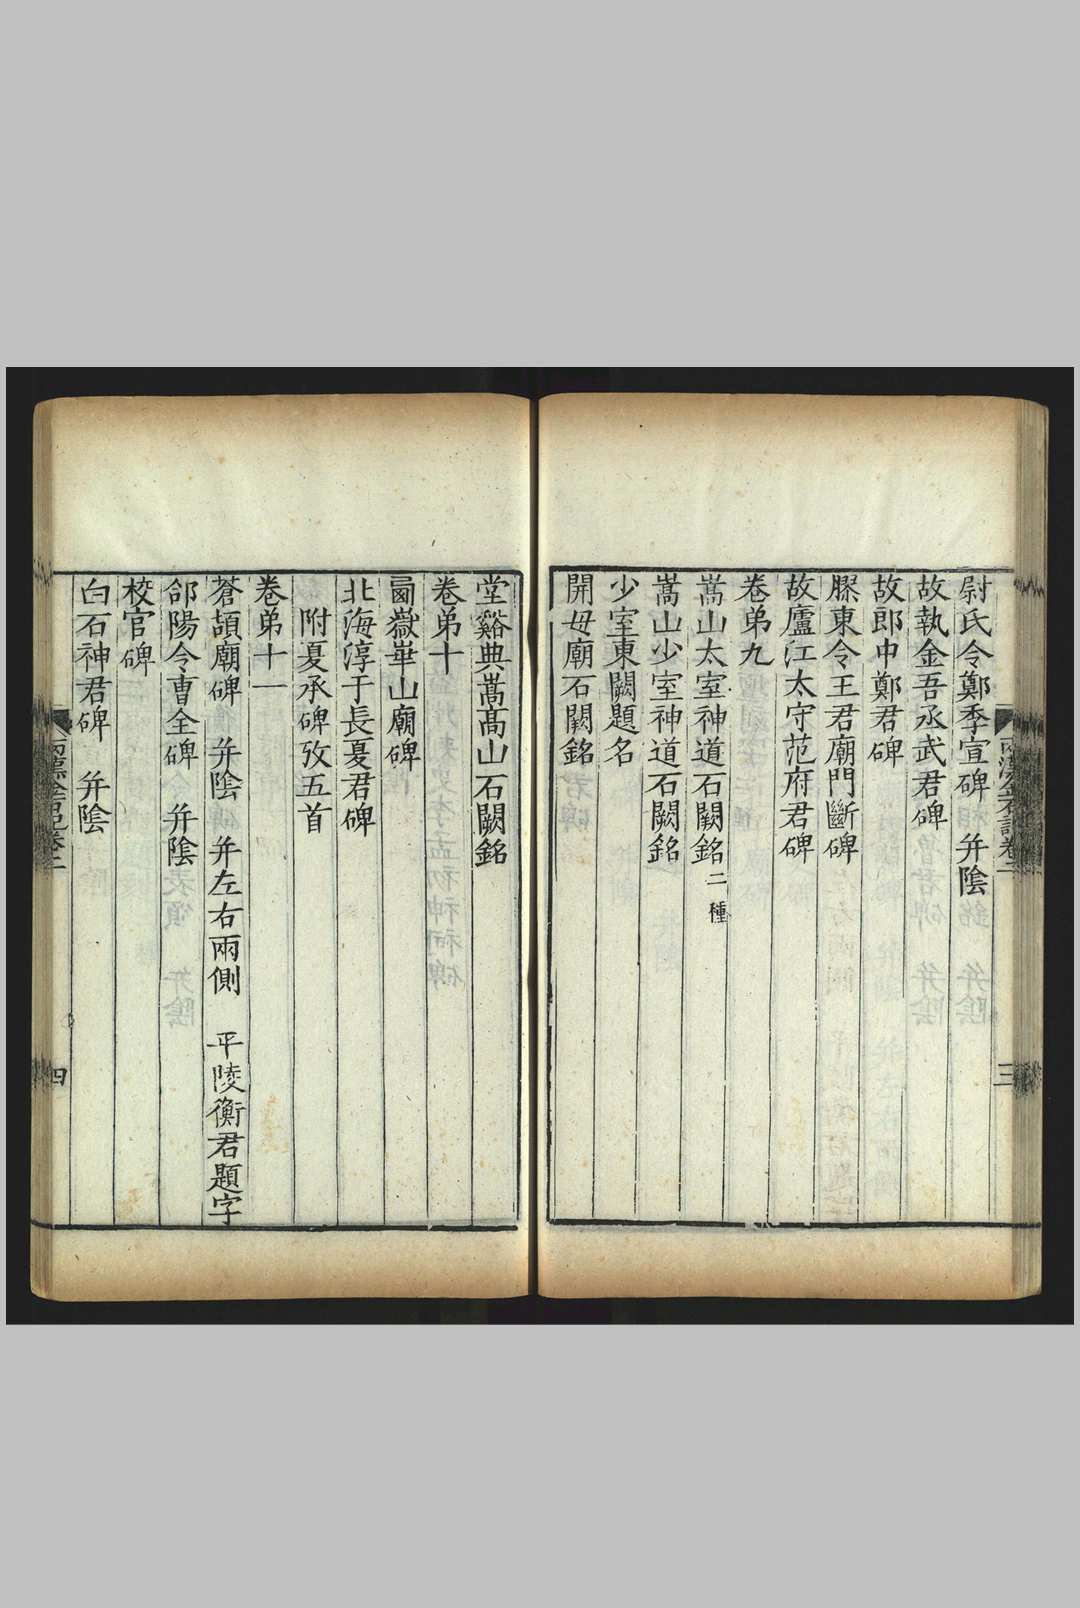 尉氏令鄭季宣碑 幷陰
故執金吾丞武君碑
故郎中鄭君碑
膠東令王君廟門斷碑
故廬江太守范府君碑
卷弟九
嵩山太室神道石闕銘二種
嵩山少室神道石闕銘
少室東闕題名
開母廟石闕銘
兩漢金石記卷二
三
堂谿典嵩高山石闕銘
卷弟十
𠧧嶽崋山廟碑
北海淳于長夏君碑
附夏承碑攷五首
卷弟十一
蒼頡廟碑 幷陰 幷左右兩側 平陵衡君題字
郃陽令曹全碑 幷陰
校官碑
白石神君碑 幷陰
四